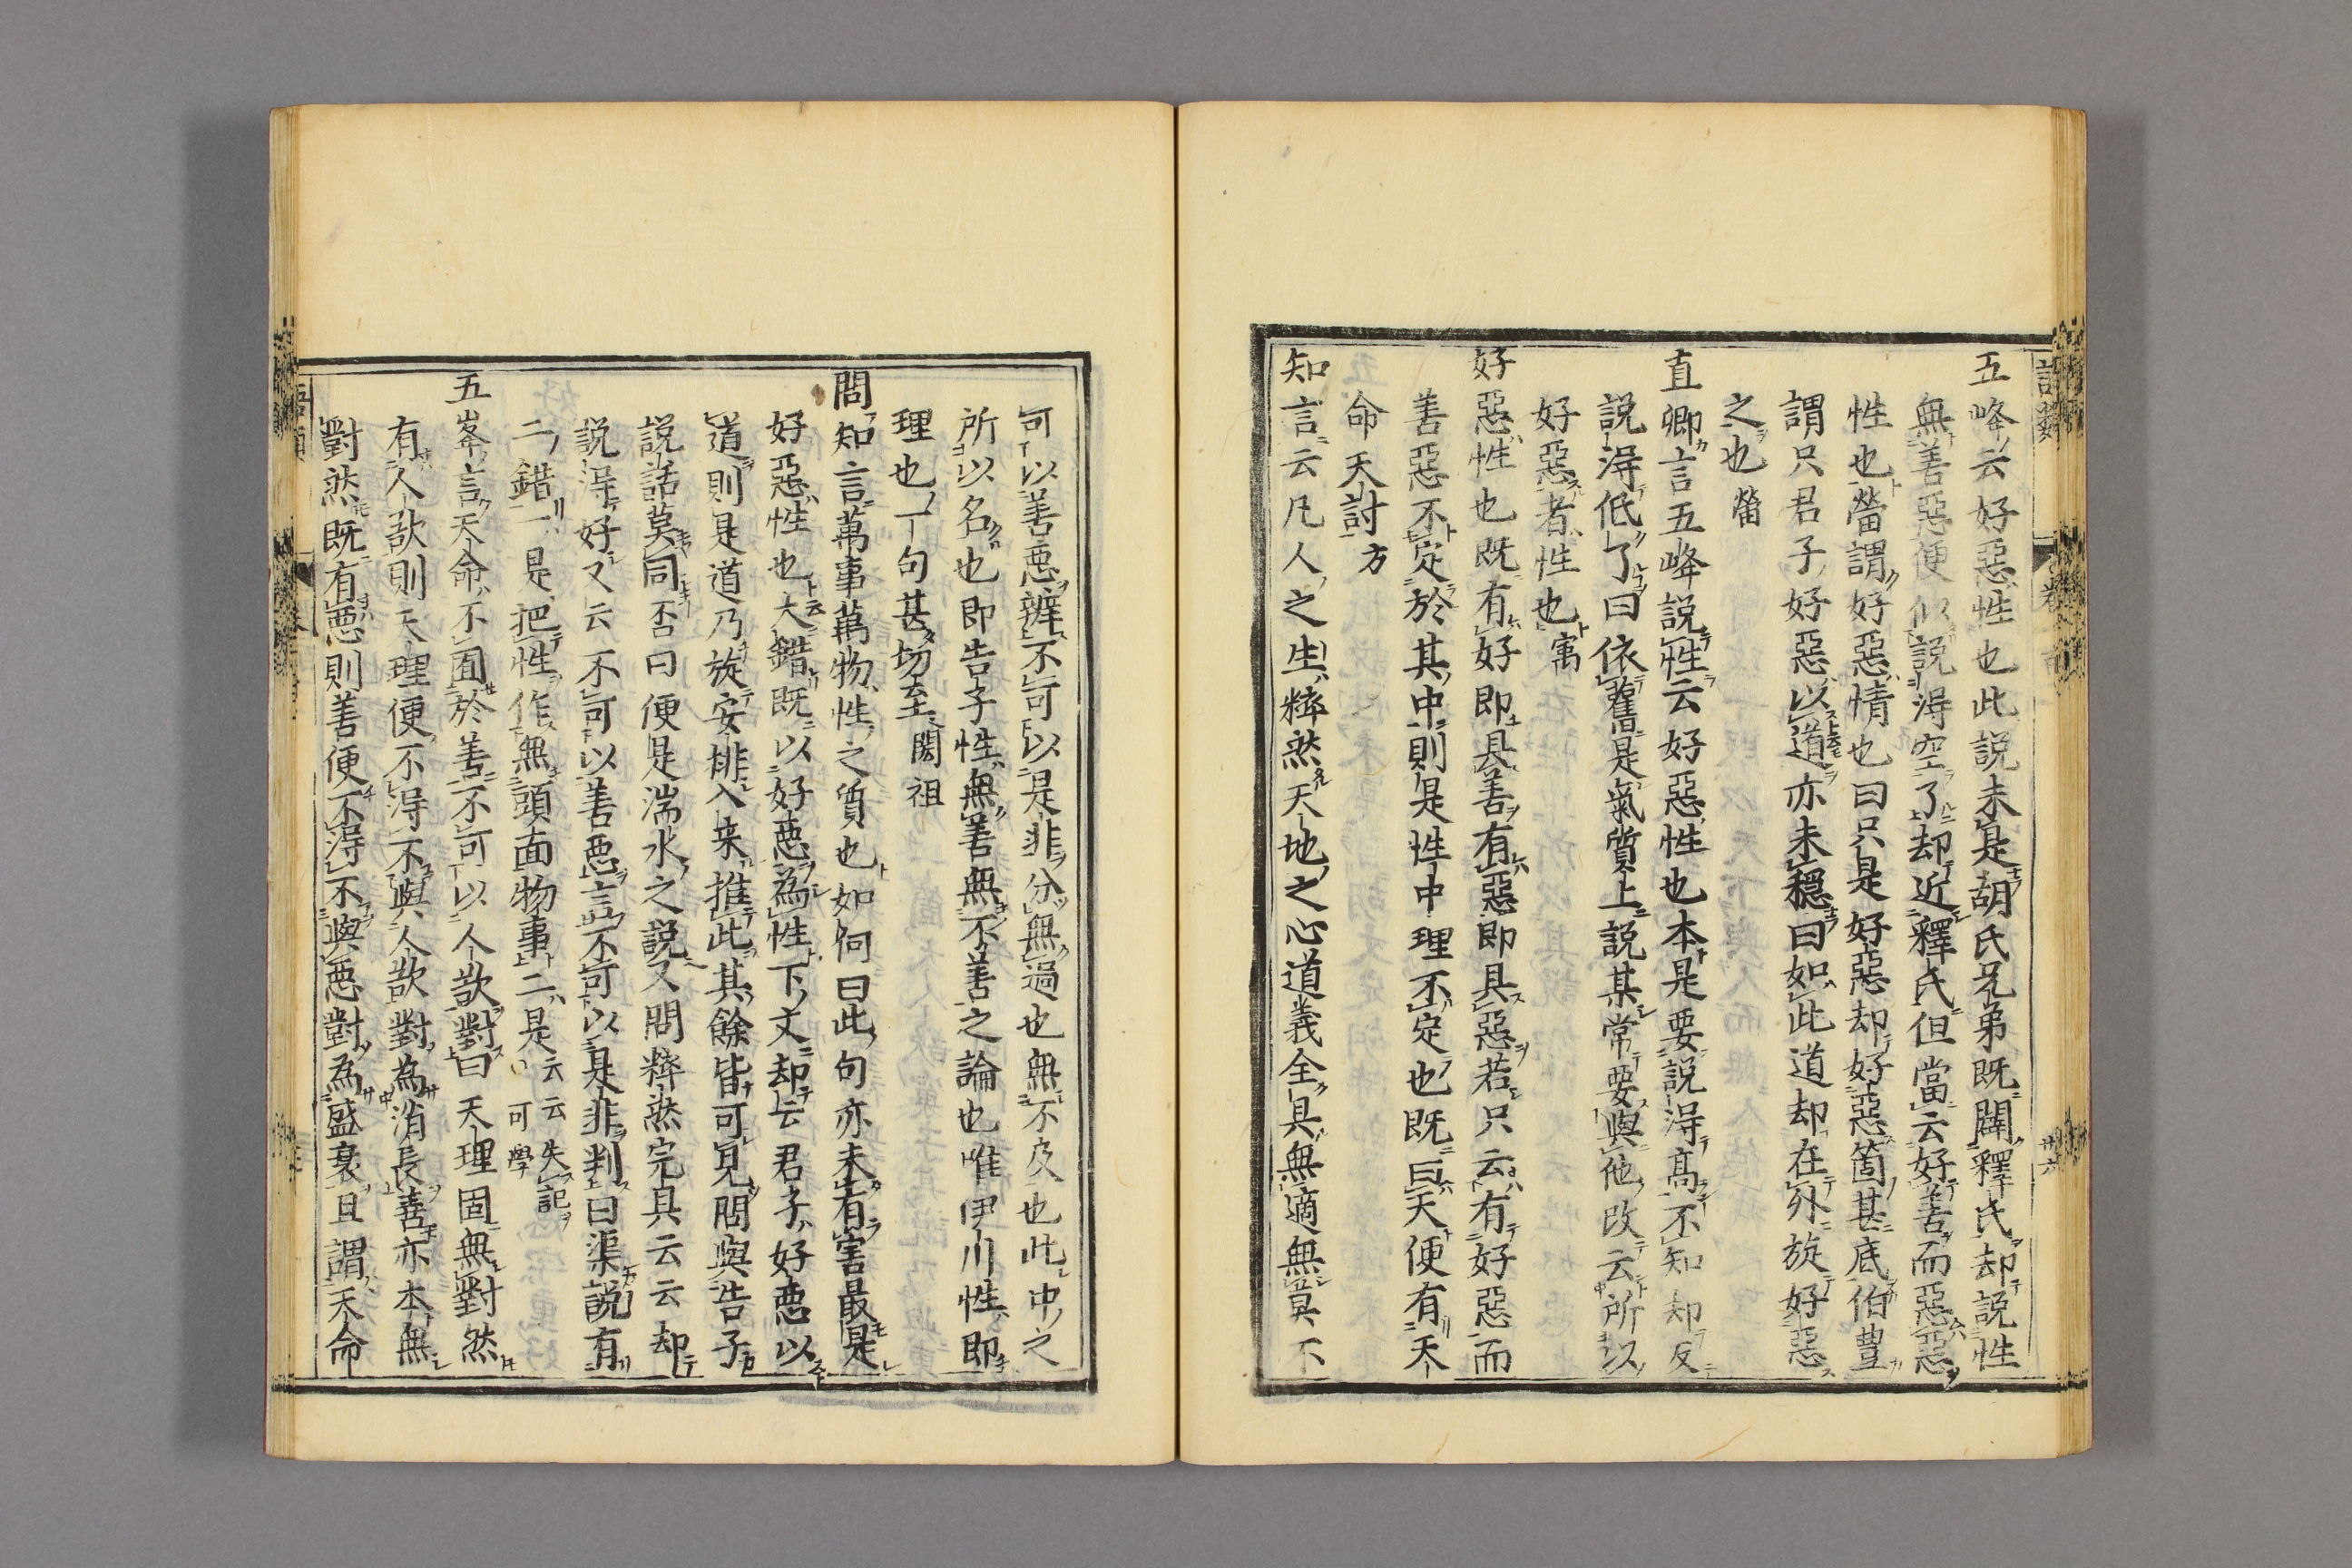 五峰云好惡性也此説未是胡氏兄弟既闢釋氏却説性
無善惡便似説得空了却近釋氏但當云好善而惡惡
性也𤲟謂好惡情也曰只是好惡却好惡箇甚底伯豊
謂只君子好惡以道亦未穏曰如此道却在外旋好惡
之也𤲟
直卿言五峰説性云好惡性也本是要説得髙不知却反
説得低了曰依舊是氣質上説某常要與他改云所以
好惡者性也㝢
好惡性也既有好即具善有惡即具惡若只云有好惡而
善惡不定於其中則是性中理不定也既曰天便有天
命天討方
知言云凡人之生粹然天地之心道義全具無適無莫不
可以善惡辨不可以是非分無過也無不及也此中之
所以名也即告子性無善無不善之論也唯伊川性即
理也一句甚切至閎祖
問知言萬事萬物性之質也如何曰此句亦未有害最是
好惡性也大錯既以好惡為性下文却云君子好惡以
道則是道乃旋安排入来推此其餘皆可見問與告子
説話莫同否曰便是湍水之説又問粹然完具云云却
説得好又云不可以善惡言不可以是非判曰渠説有
二錯一是把性作無頭面物事二是云云失記
可學
五峯言天命不囿於善不可以人欲對曰天理固無對然
有人欲則天理便不得不與人欲對為消長善亦本無
對然既有惡則善便不得不與惡對為盛衰且謂天命